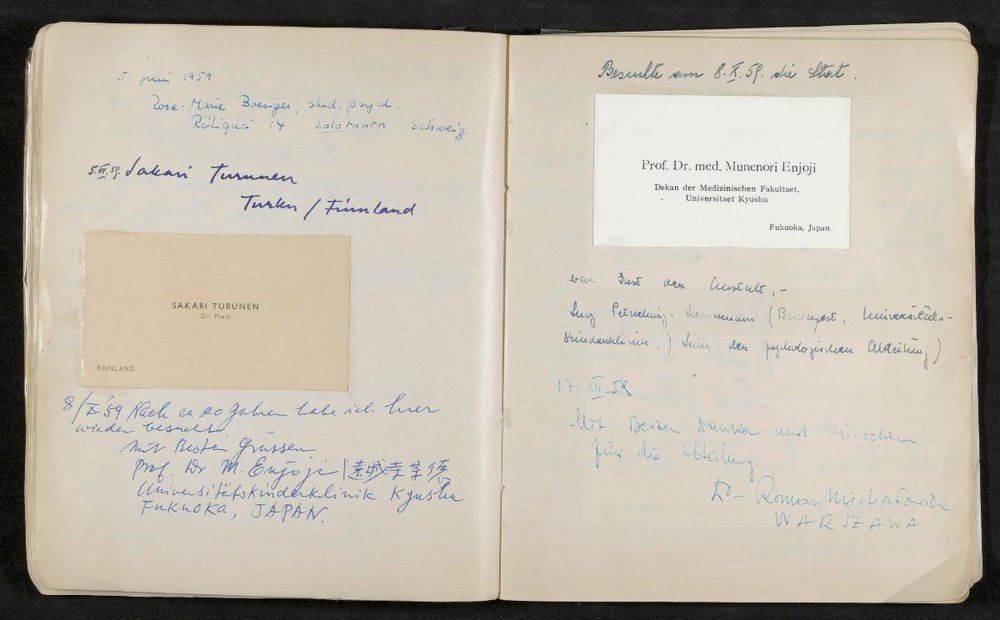 5. Juni 1959
Rose-Marie Boesiger, stud. psych.
14, Solothurn Schweiz
5.VI.59. Sakari Turunen
Turku / Finnland
SAKARI TURUNEN
Dr. Med.
FINNLAND
8/X '59 Nach ca 20 Jahren habe ich hier
wieder besucht
mit Besten Grüssen
Prof. Dr. M. Enjoji
Universitätskinderklinik Kyushu
FUKUOKA, JAPAN.
Besuchte am 8.X.59. die Stat.
Prof. Dr. med. Munenori Enjoji
Dekan der Medizinischen Fakultaet,
Universitaet Kyushu
Fukuoka, Japan
Gast der Anstalt, -
(Budapest, Universitäts-
der psychologischen Abteilung)
17.
Mit Besten Danken und Wünschen
für die Abteilung
Dr Roman
WARSZAWA